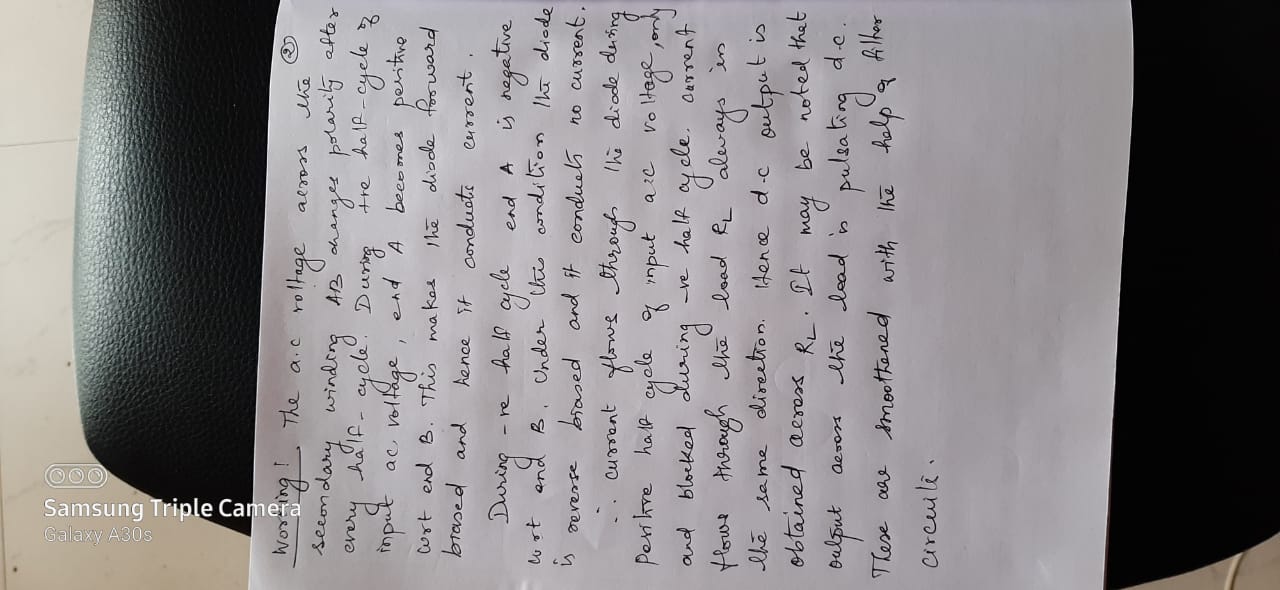 ②
Working! The a.c voltage across the
secondary winding AB changes polarity after
every half-cycle. During +re half-cycle of
input ac voltage, end A becomes positive
wrt end B. This makes the diode forward
biased and hence it conducts current.
During -re half cycle end A is negative
wrt end B. Under this condition the diode
is reverse biased and it conducts no current.
∴ current flows through the diode during
positive half cycle of input a.c voltage, only
and blocked during -re half cycle. current
flows through the load RL always in
the same direction. Hence d.c output is
obtained across RL. It may be noted that
output across the load is pulsating d.c.
These are smoothened with the help of filter
circuits.
Samsung Triple Camera
Galaxy A30s